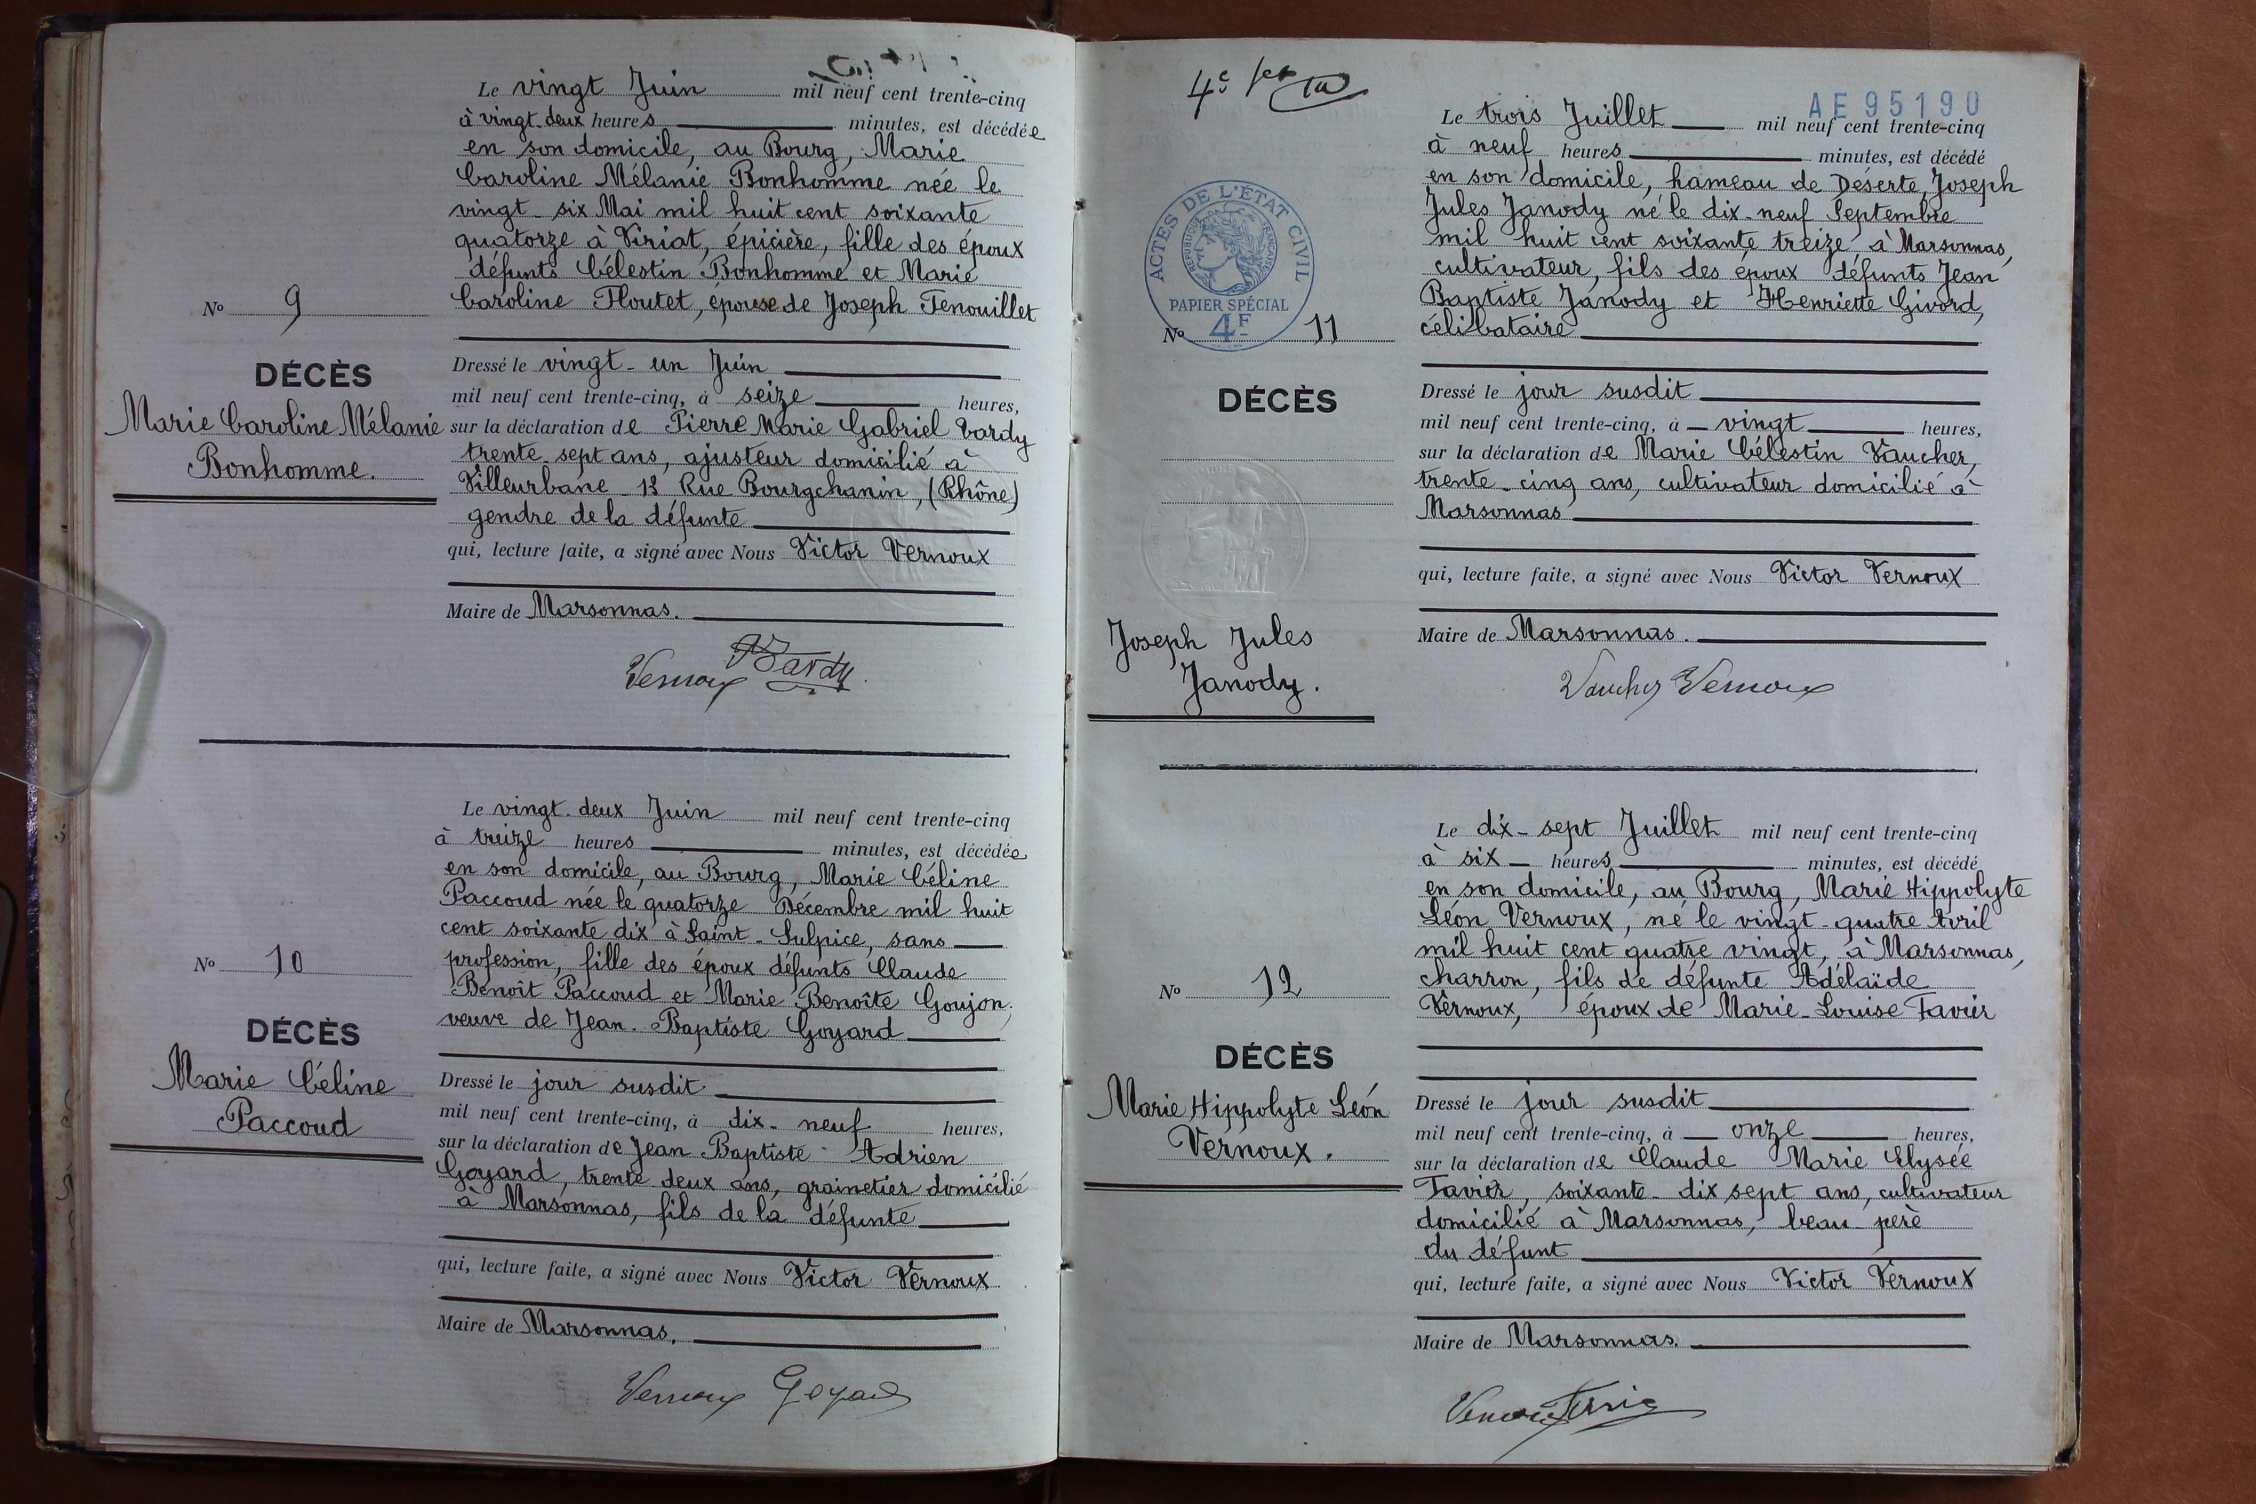 Le vingt Juin mil neuf cent trente-cinq
à vingt-deux heures minutes, est décédée
en son domicile, au Bourg, Marie
Caroline Mélanie Bonhomme née le
vingt-six Mai mil huit cent soixante
quatorze à Viriat, épicière, fille des époux
défunts Célestin Bonhomme et Marie
Caroline Floutet, épouse de Joseph Tenouillet
No 9
DÉCÈS
Marie Caroline Mélanie
Bonhomme.
Dressé le vingt-un Juin
mil neuf cent trente-cinq, à seize heures,
sur la déclaration de Pierre Marie Gabriel Vardy
trente-sept ans, ajusteur domicilié à
Villeurbane 13 Rue Bourgchanin, (Rhône)
gendre de la défunte
qui, lecture faite, a signé avec Nous Victor Vernoux
Maire de Marsonnas.
Vernoux
Le vingt-deux Juin mil neuf cent trente-cinq
à treize heures minutes, est décédée
en son domicile, au Bourg, Marie Céline
Paccoud née le quatorze Décembre mil huit
cent soixante dix à Saint-Sulpice, sans
profession, fille des époux défunts Claude
Benoît Paccoud et Marie Benoîte Goujon,
veuve de Jean-Baptiste Goyard
No 10
DÉCÈS
Marie Céline
Paccoud
Dressé le jour susdit
mil neuf cent trente-cinq, à dix-neuf heures,
sur la déclaration de Jean Baptiste Adrien
Goyard, trente deux ans, grainetier domicilié
à Marsonnas, fils de la défunte
qui, lecture faite, a signé avec Nous Victor Vernoux
Maire de Marsonnas.
Vernoux Goyard
4e
AE 95190
Le trois Juillet mil neuf cent trente-cinq
à neuf heures minutes, est décédé
en son domicile, hameau de Déserte, Joseph
Jules Janody né le dix-neuf Septembre
mil huit cent soixante treize à Marsonnas,
cultivateur, fils des époux défunts Jean
Baptiste Janody et Henriette Givord,
célibataire
ACTES DE L'ÉTAT CIVIL
RÉPUBLIQUE FRANÇAISE
PAPIER SPÉCIAL
4F
No 11
DÉCÈS
Joseph Jules
Janody.
Dressé le jour susdit
mil neuf cent trente-cinq, à vingt heures,
sur la déclaration de Marie Célestin Vaucher,
trente-cinq ans, cultivateur domicilié à
Marsonnas
qui, lecture faite, a signé avec Nous Victor Vernoux
Maire de Marsonnas.
Vaucher Vernoux
Le dix-sept Juillet mil neuf cent trente-cinq
à six heures minutes, est décédé
en son domicile, au Bourg, Marie Hippolyte
Léon Vernoux, né le vingt-quatre Avril
mil huit cent quatre vingt, à Marsonnas,
charron, fils de défunte Adélaïde
Vernoux, époux de Marie-Louise Favier
No 12
DÉCÈS
Marie Hippolyte Léon
Vernoux.
Dressé le jour susdit
mil neuf cent trente-cinq, à onze heures,
sur la déclaration de Claude Marie Elysée
Favier, soixante-dix sept ans, cultivateur
domicilié à Marsonnas, beau-père
du défunt
qui, lecture faite, a signé avec Nous Victor Vernoux
Maire de Marsonnas.
Vernoux